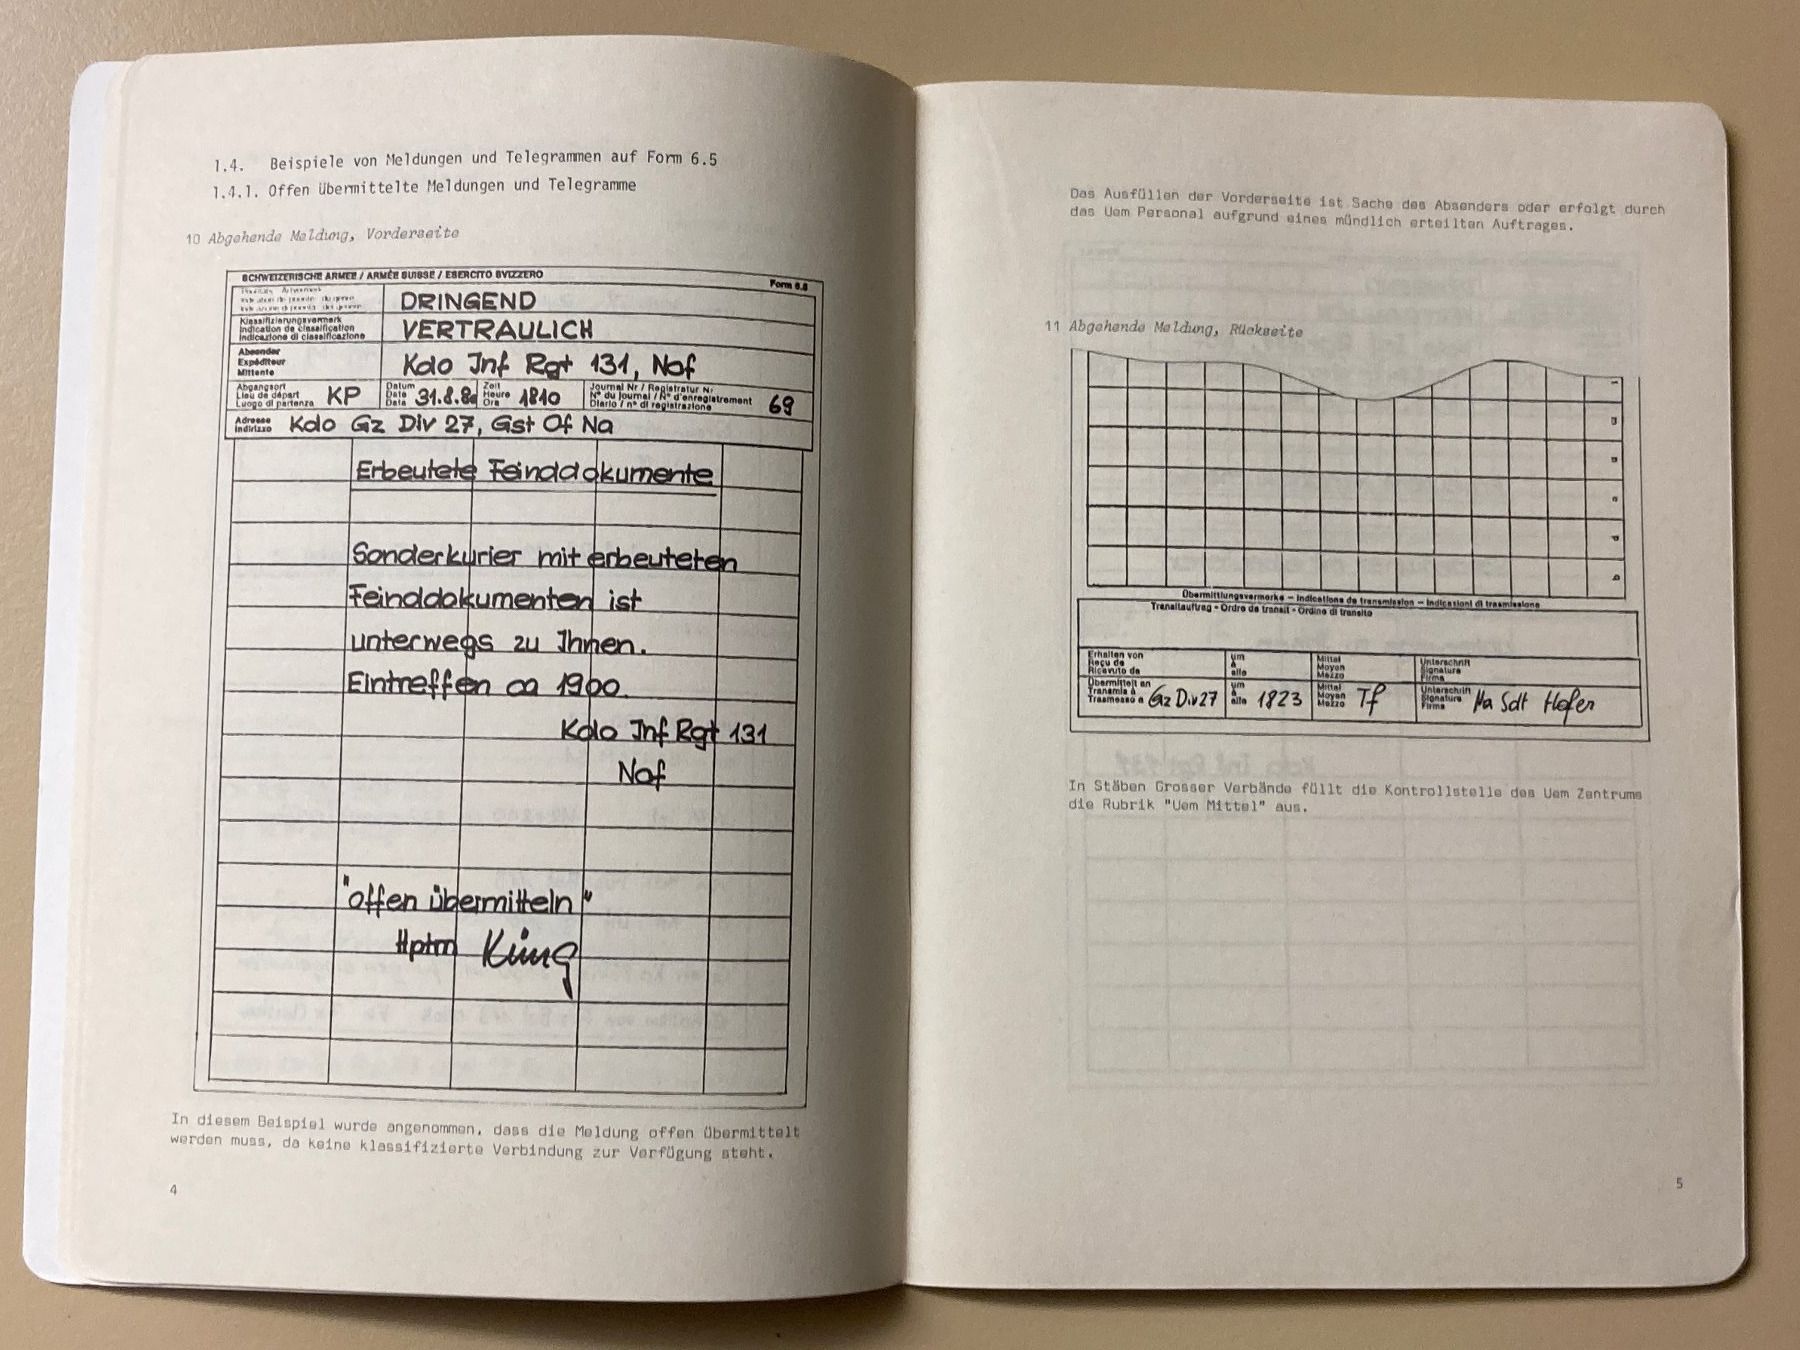 1.4. Beispiele von Meldungen und Telegrammen auf Form 6.5
1.4.1. Offen übermittelte Meldungen und Telegramme
10 Abgehende Meldung, Vorderseite
SCHWEIZERISCHE ARMEE / ARMÉE SUISSE / ESERCITO SVIZZERO
Form 6.5
DRINGEND
Klassifizierungsvermerk
Indication de classification
Indicazione di classificazione
VERTRAULICH
Absender
Expéditeur
Mittente
Kdo Inf Rgt 131, Nof
Abgangsort
Lieu de départ
Luogo di partenza
KP
Datum
Date
Data
31.8.
Zeit
Heure
Ora
1810
Journal Nr / Registratur Nr
N° du journal / N° d'enregistrement
Diario / n° di registrazione
69
Adresse
Indirizzo
Kdo Gz Div 27, Gst Of Na
Erbeutete Feinddokumente
Sonderkurier mit erbeuteten
Feinddokumenten ist
unterwegs zu Ihnen.
Eintreffen ca 1900.
Kdo Inf Rgt 131
Nof
"offen übermitteln"
Hptm Küng
In diesem Beispiel wurde angenommen, dass die Meldung offen übermittelt
werden muss, da keine klassifizierte Verbindung zur Verfügung steht.
4
Das Ausfüllen der Vorderseite ist Sache des Absenders oder erfolgt durch
das Uem Personal aufgrund eines mündlich erteilten Auftrages.
11 Abgehende Meldung, Rückseite
Übermittlungsvermerke – Indications de transmission – Indicazioni di trasmissione
Transitauftrag - Ordre de transit - Ordine di transito
Erhalten von
Reçu de
Ricevuto da
um
à
alle
Mittel
Moyen
Mezzo
Unterschrift
Signature
Firma
Übermittelt an
Transmis à
Trasmesso a
Gz Div 27
um
à
alle
1823
Mittel
Moyen
Mezzo
Tf
Unterschrift
Signature
Firma
Na Sdt Hofer
In Stäben Grosser Verbände füllt die Kontrollstelle des Uem Zentrums
die Rubrik "Uem Mittel" aus.
5